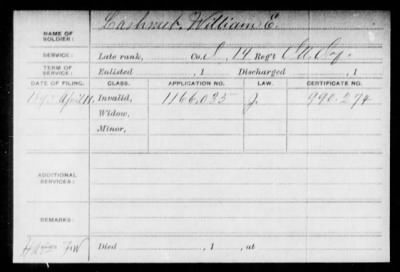 NAME OF SOLDIER: Cashmet, William E.
SERVICE: Late rank, Co. , 14 Reg't
TERM OF SERVICE: Enlisted , 1 Discharged , 1
DATE OF FILING. CLASS. APPLICATION NO. LAW. CERTIFICATE NO.
April 11, Invalid, 1166,035 J. 990.274
Widow,
Minor,
ADDITIONAL SERVICES:
REMARKS:
Died , 1 , at